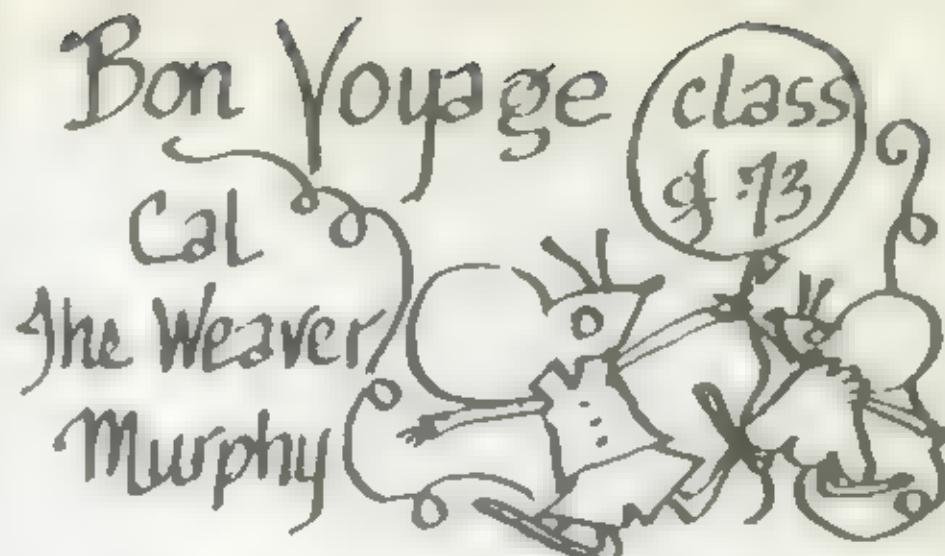 Bon Voyage
class
of '73
Cal
The Weaver
Murphy